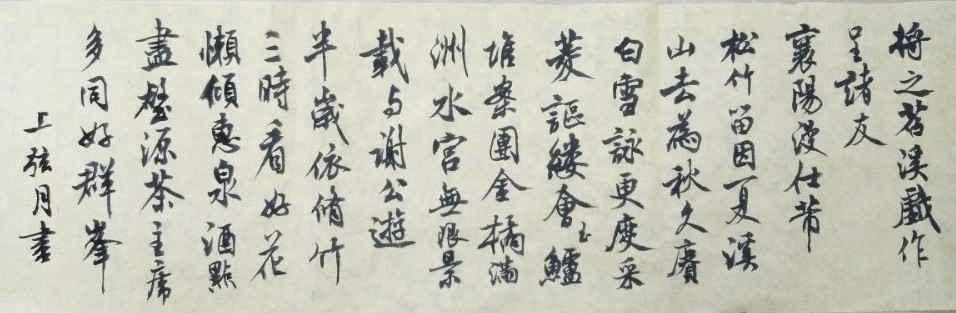 將之苕溪戲作
呈諸友
襄陽漫仕芾
松竹留因夏溪
山去為秋久賡
白雪詠更度采
菱謳縷會玉鱸
堆案團金橘滿
洲水宮無限景
載与謝公遊
半歲依脩竹
三時看好花
懶傾惠泉酒點
盡壑源茶主席
多同好群峯
上弦月書